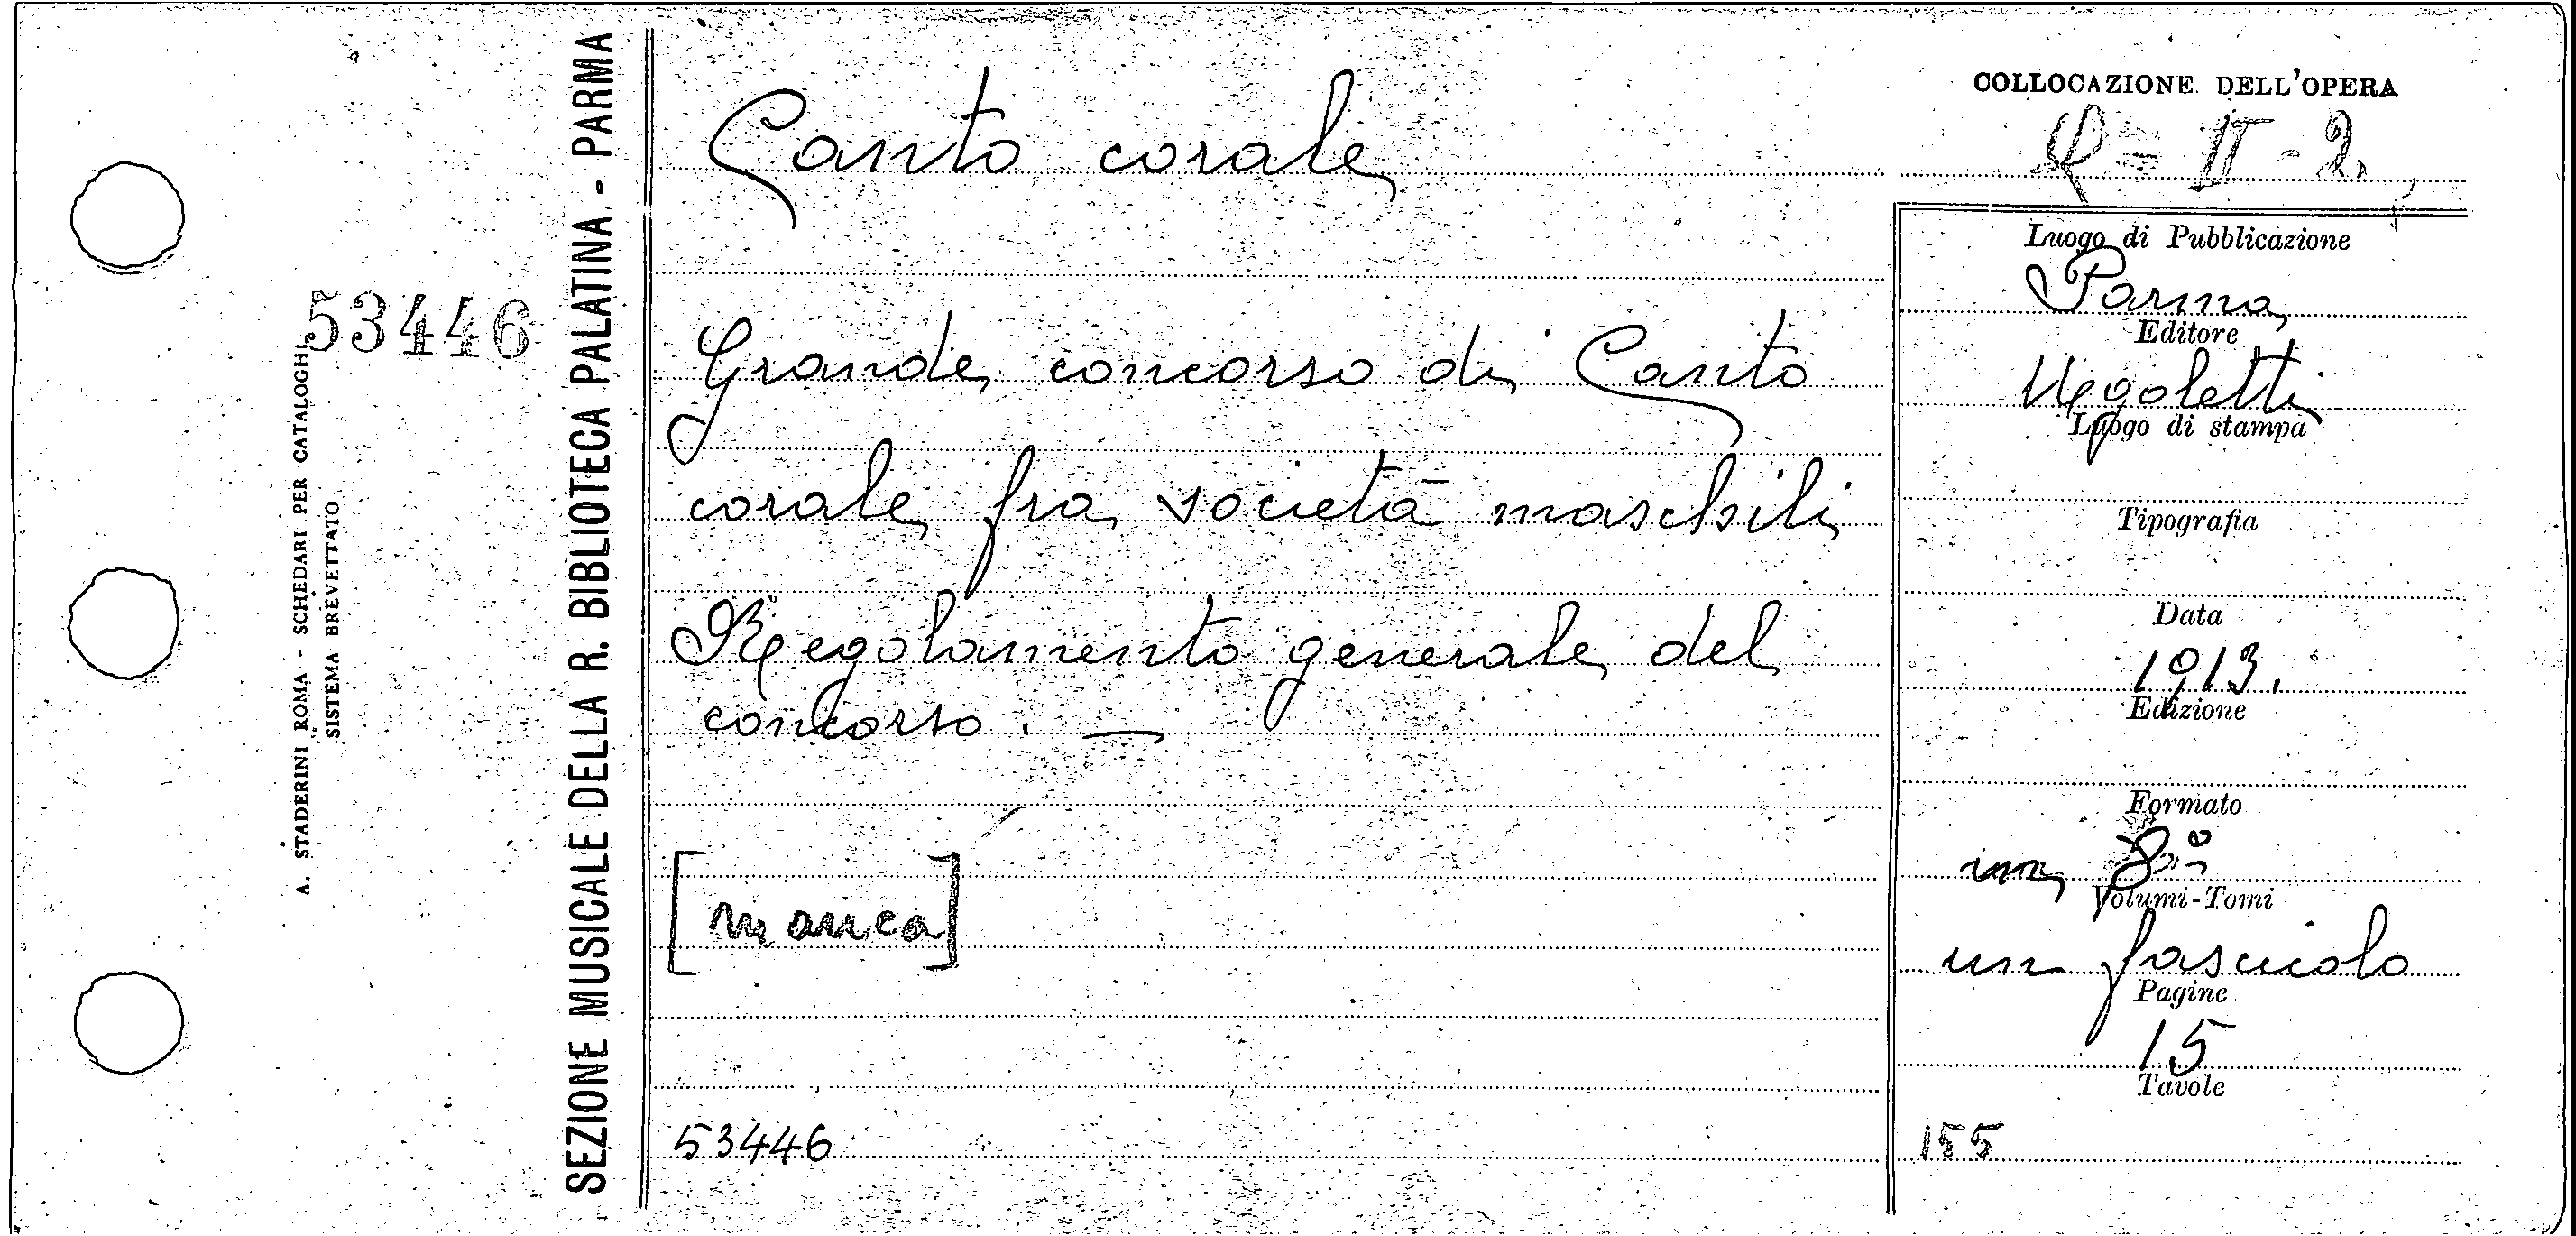 Canto corale
Grande concorso di Canto
corale fra società maschili
Regolamento generale del
concorso. —
[manca]
53446
COLLOCAZIONE DELL'OPERA
II - 2.
Luogo di Pubblicazione
Parma
Editore
Ugoletti
Luogo di stampa
Tipografia
Data
1913.
Edizione
Formato
in 8°
Volumi-Tomi
un fascicolo
Pagine
15
Tavole
155
SEZIONE MUSICALE DELLA R. BIBLIOTECA PALATINA - PARMA
53446
A. STADERINI ROMA - SCHEDARI PER CATALOGHI
SISTEMA BREVETTATO